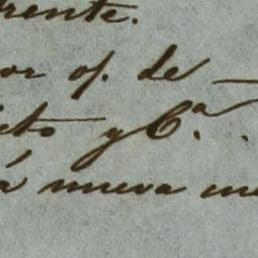 rente.
or of. de
cto y Cª.
á nueva